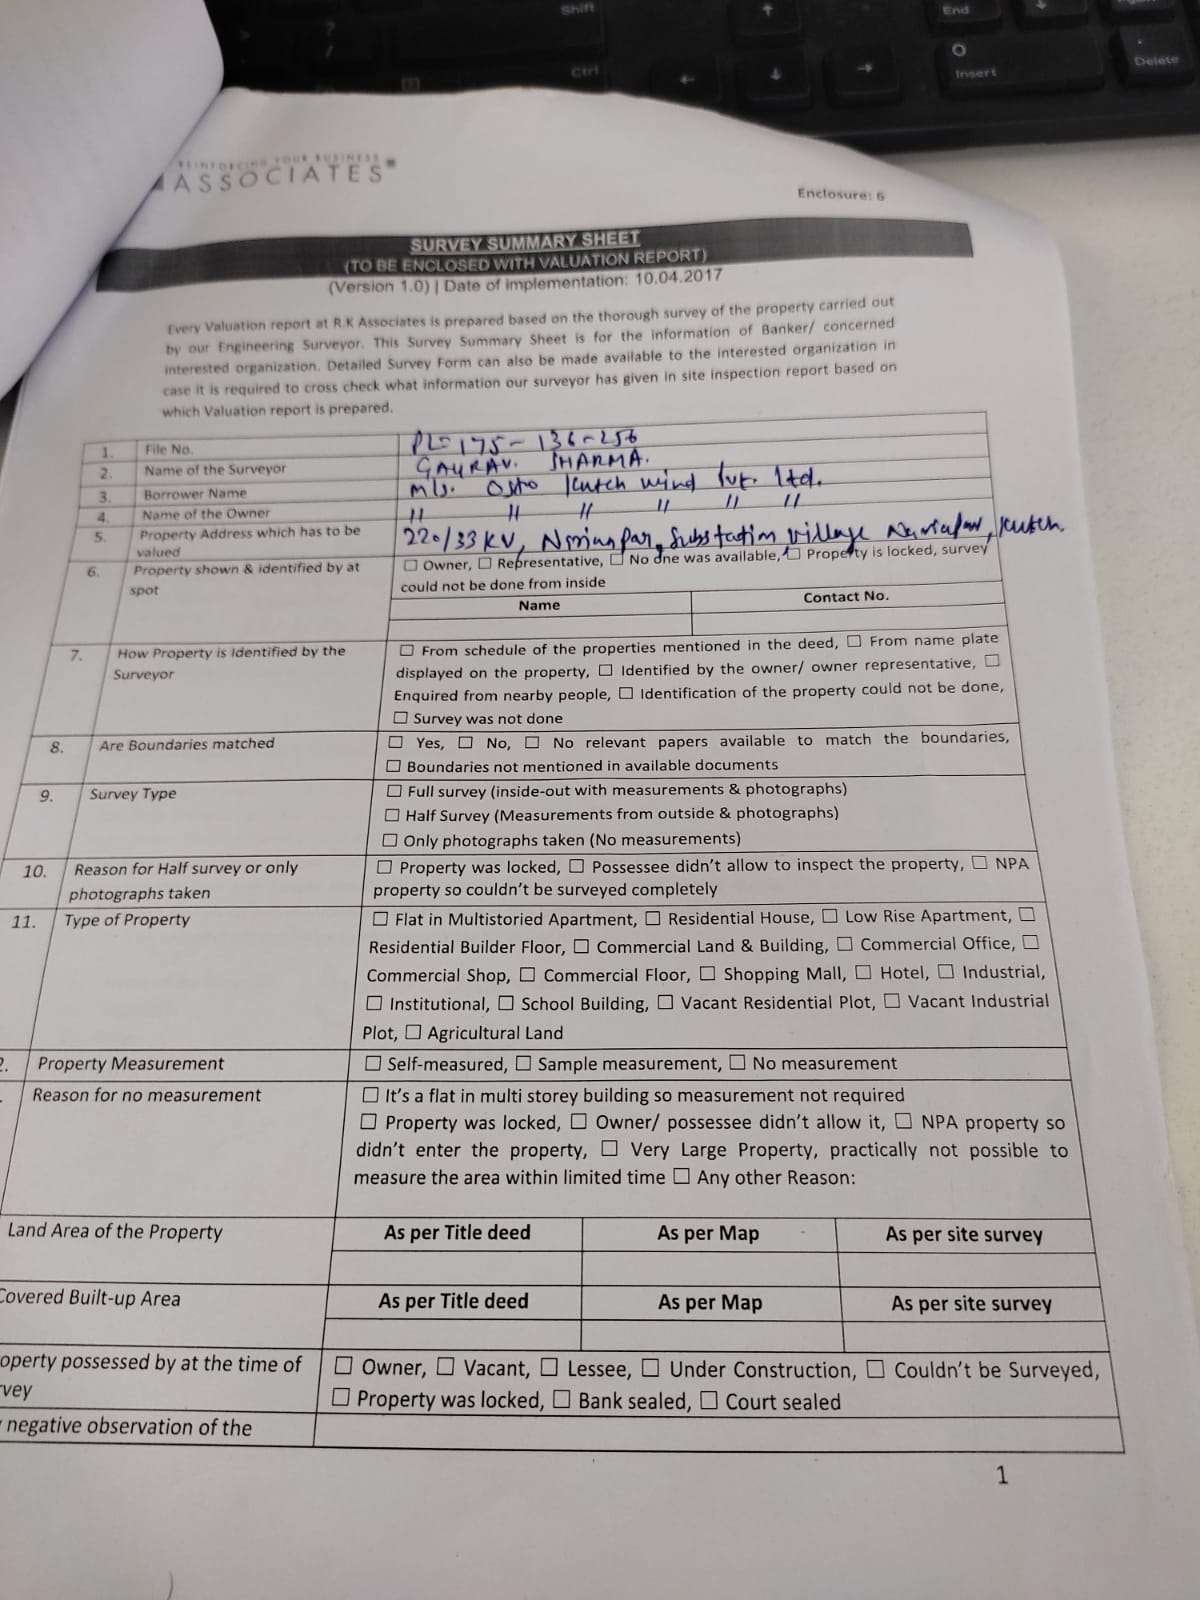 Shift
End
?
/
Ctrl
←
↓
→
Insert
Delete
REINFORCING YOUR BUSINESS
ASSOCIATES
Enclosure: 6
SURVEY SUMMARY SHEET
(TO BE ENCLOSED WITH VALUATION REPORT)
(Version 1.0) | Date of implementation: 10.04.2017
Every Valuation report at R.K Associates is prepared based on the thorough survey of the property carried out
by our Engineering Surveyor. This Survey Summary Sheet is for the information of Banker/ concerned
interested organization. Detailed Survey Form can also be made available to the interested organization in
case it is required to cross check what information our surveyor has given in site inspection report based on
which Valuation report is prepared.
1. File No. PL-175-136-256
2. Name of the Surveyor GAURAV. SHARMA.
3. Borrower Name M/s. Kutch wind Pvt. Ltd.
4. Name of the Owner 〃 〃 〃 〃 〃 〃
5. Property Address which has to be valued 220/33 KV, Substation village Kutch.
6. Property shown & identified by at spot
☐ Owner, ☐ Representative, ☐ No one was available, ☐ Property is locked, survey
could not be done from inside
Name Contact No.
7. How Property is Identified by the Surveyor
☐ From schedule of the properties mentioned in the deed, ☐ From name plate
displayed on the property, ☐ Identified by the owner/ owner representative, ☐
Enquired from nearby people, ☐ Identification of the property could not be done,
☐ Survey was not done
8. Are Boundaries matched ☐ Yes, ☐ No, ☐ No relevant papers available to match the boundaries,
☐ Boundaries not mentioned in available documents
9. Survey Type ☐ Full survey (inside-out with measurements & photographs)
☐ Half Survey (Measurements from outside & photographs)
☐ Only photographs taken (No measurements)
10. Reason for Half survey or only photographs taken
☐ Property was locked, ☐ Possessee didn't allow to inspect the property, ☐ NPA
property so couldn't be surveyed completely
11. Type of Property ☐ Flat in Multistoried Apartment, ☐ Residential House, ☐ Low Rise Apartment, ☐
Residential Builder Floor, ☐ Commercial Land & Building, ☐ Commercial Office, ☐
Commercial Shop, ☐ Commercial Floor, ☐ Shopping Mall, ☐ Hotel, ☐ Industrial,
☐ Institutional, ☐ School Building, ☐ Vacant Residential Plot, ☐ Vacant Industrial
Plot, ☐ Agricultural Land
2. Property Measurement ☐ Self-measured, ☐ Sample measurement, ☐ No measurement
. Reason for no measurement ☐ It's a flat in multi storey building so measurement not required
☐ Property was locked, ☐ Owner/ possessee didn't allow it, ☐ NPA property so
didn't enter the property, ☐ Very Large Property, practically not possible to
measure the area within limited time ☐ Any other Reason:
Land Area of the Property As per Title deed As per Map As per site survey
Covered Built-up Area As per Title deed As per Map As per site survey
operty possessed by at the time of
vey
☐ Owner, ☐ Vacant, ☐ Lessee, ☐ Under Construction, ☐ Couldn't be Surveyed,
☐ Property was locked, ☐ Bank sealed, ☐ Court sealed
negative observation of the
1